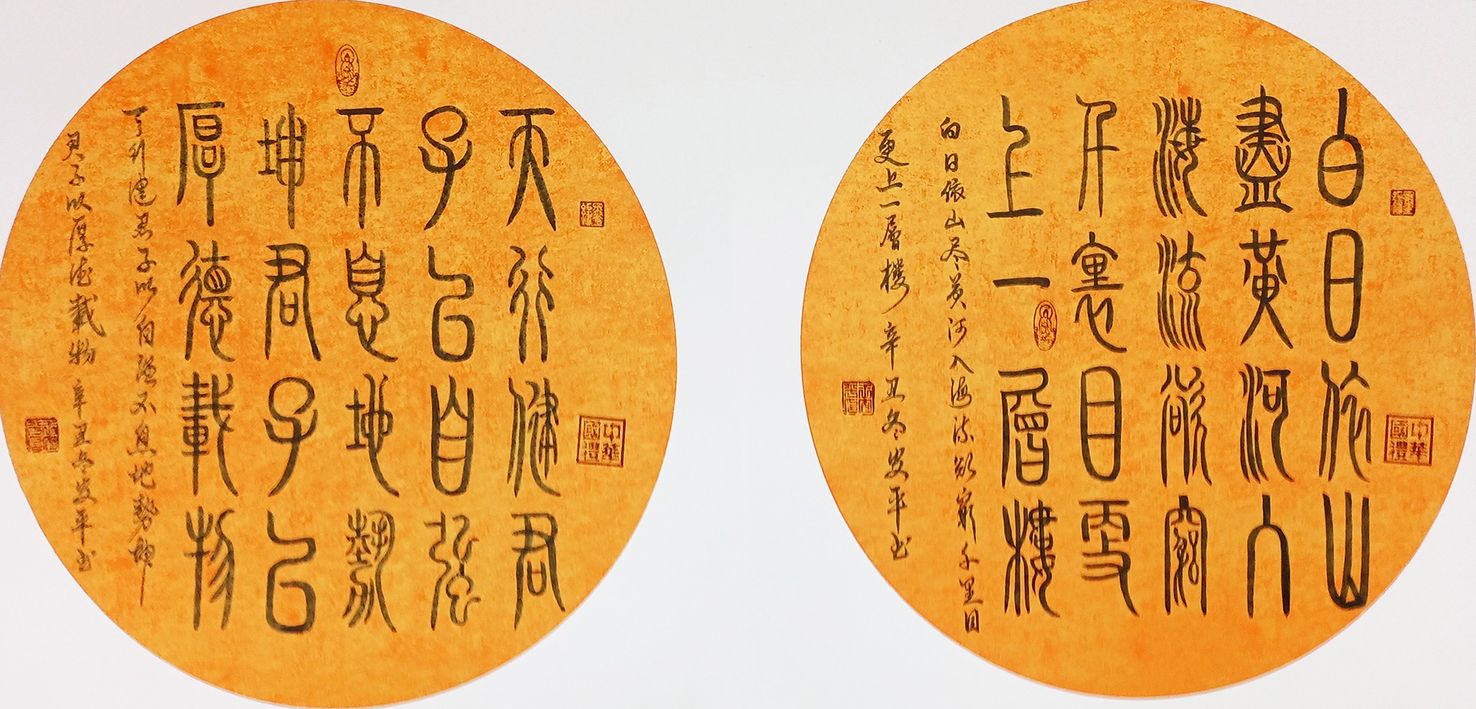 白日依山
盡黄河入
海流欲窮
千裏目更
上一層樓
白日依山尽黄河入海流欲窮千里目
更上一層樓 辛丑冬 平书
中華
國禮
天行健君
子以自强
不息地勢
坤君子以
厚德載物
天行健君子以自强不息地勢坤
君子以厚德載物 辛丑冬 平书
中華
國禮